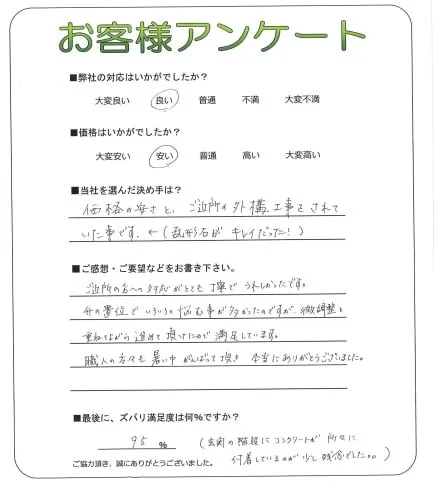 お客様アンケート
■弊社の対応はいかがでしたか?
大変良い 良い 普通 不満 大変不満
■価格はいかがでしたか?
大変安い 安い 普通 高い 大変高い
■当社を選んだ決め手は?
価格の安さと、ご近所の外構工事をされて
いた事です。←(乱形石がキレイだった!)
■ご感想・ご要望などをお書き下さい。
ご近所の方への対応がとても丁寧でうれしかったです。
舛の置位でいろいろ悩む事が多かったのですが、微調整を
重ねながら進めて頂けたので満足しています。
職人の方々も暑い中がんばって頂き 本当にありがとうございました。
■最後に、ズバリ満足度は何%ですか?
95 % (玄関の階段にコンクリートが所々に
付着しているのが少し残念でした。。)
ご協力頂き、誠にありがとうございました。